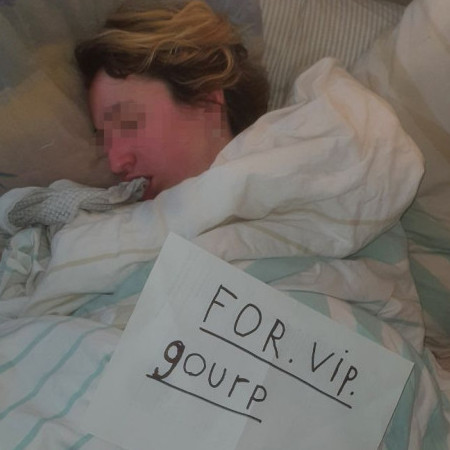 FOR. ViP.
gourp